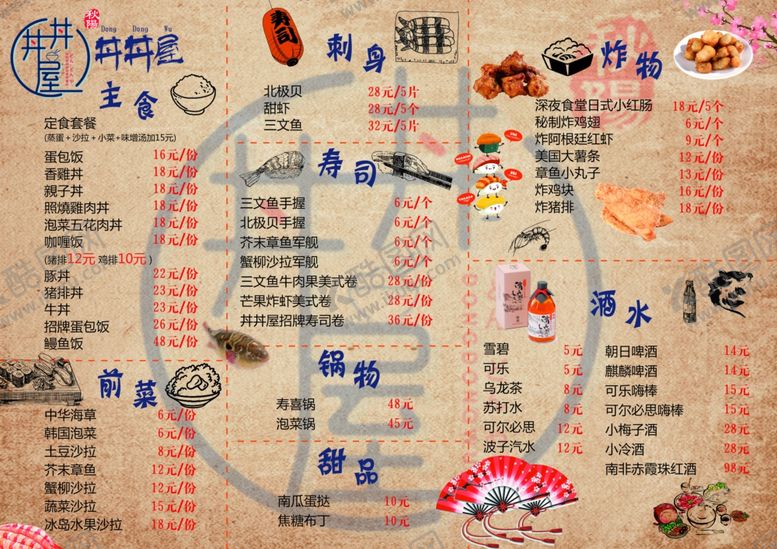 秋陽
丼丼屋
Dong Dong Wu
丼丼屋
主食
定食套餐
(蒸蛋+沙拉+小菜+味增汤加15元)
蛋包饭 16元/份
香雞丼 18元/份
親子丼 18元/份
照燒雞肉丼 18元/份
泡菜五花肉丼 18元/份
咖喱饭 18元/份
(猪排12元 鸡排10元)
豚丼 22元/份
猪排丼 23元/份
牛丼 23元/份
招牌蛋包饭 26元/份
鳗鱼饭 48元/份
前菜
中华海草 6元/份
韩国泡菜 6元/份
土豆沙拉 8元/份
芥末章鱼 12元/份
蟹柳沙拉 12元/份
蔬菜沙拉 15元/份
冰岛水果沙拉 18元/份
寿司
刺身
北极贝 28元/5片
甜虾 28元/5个
三文鱼 32元/5片
寿司
三文鱼手握 6元/个
北极贝手握 6元/个
芥末章鱼军舰 6元/个
蟹柳沙拉军舰 6元/个
三文鱼牛肉果美式卷 28元/份
芒果炸虾美式卷 28元/份
丼丼屋招牌寿司卷 36元/份
锅物
寿喜锅 48元
泡菜锅 45元
甜品
南瓜蛋挞 10元
焦糖布丁 10元
炸物
深夜食堂日式小红肠 18元/5个
秘制炸鸡翅 6元/个
炸阿根廷红虾 9元/个
美国大薯条 12元/份
章鱼小丸子 13元/份
炸鸡块 16元/份
炸猪排 18元/份
酒水
雪碧 5元
可乐 5元
乌龙茶 8元
苏打水 8元
可尔必思 12元
波子汽水 12元
朝日啤酒 14元
麒麟啤酒 14元
可乐嗨棒 15元
可尔必思嗨棒 15元
小梅子酒 28元
小冷酒 28元
南非赤霞珠红酒 98元
丼丼屋
秋陽
DONGDONGWU